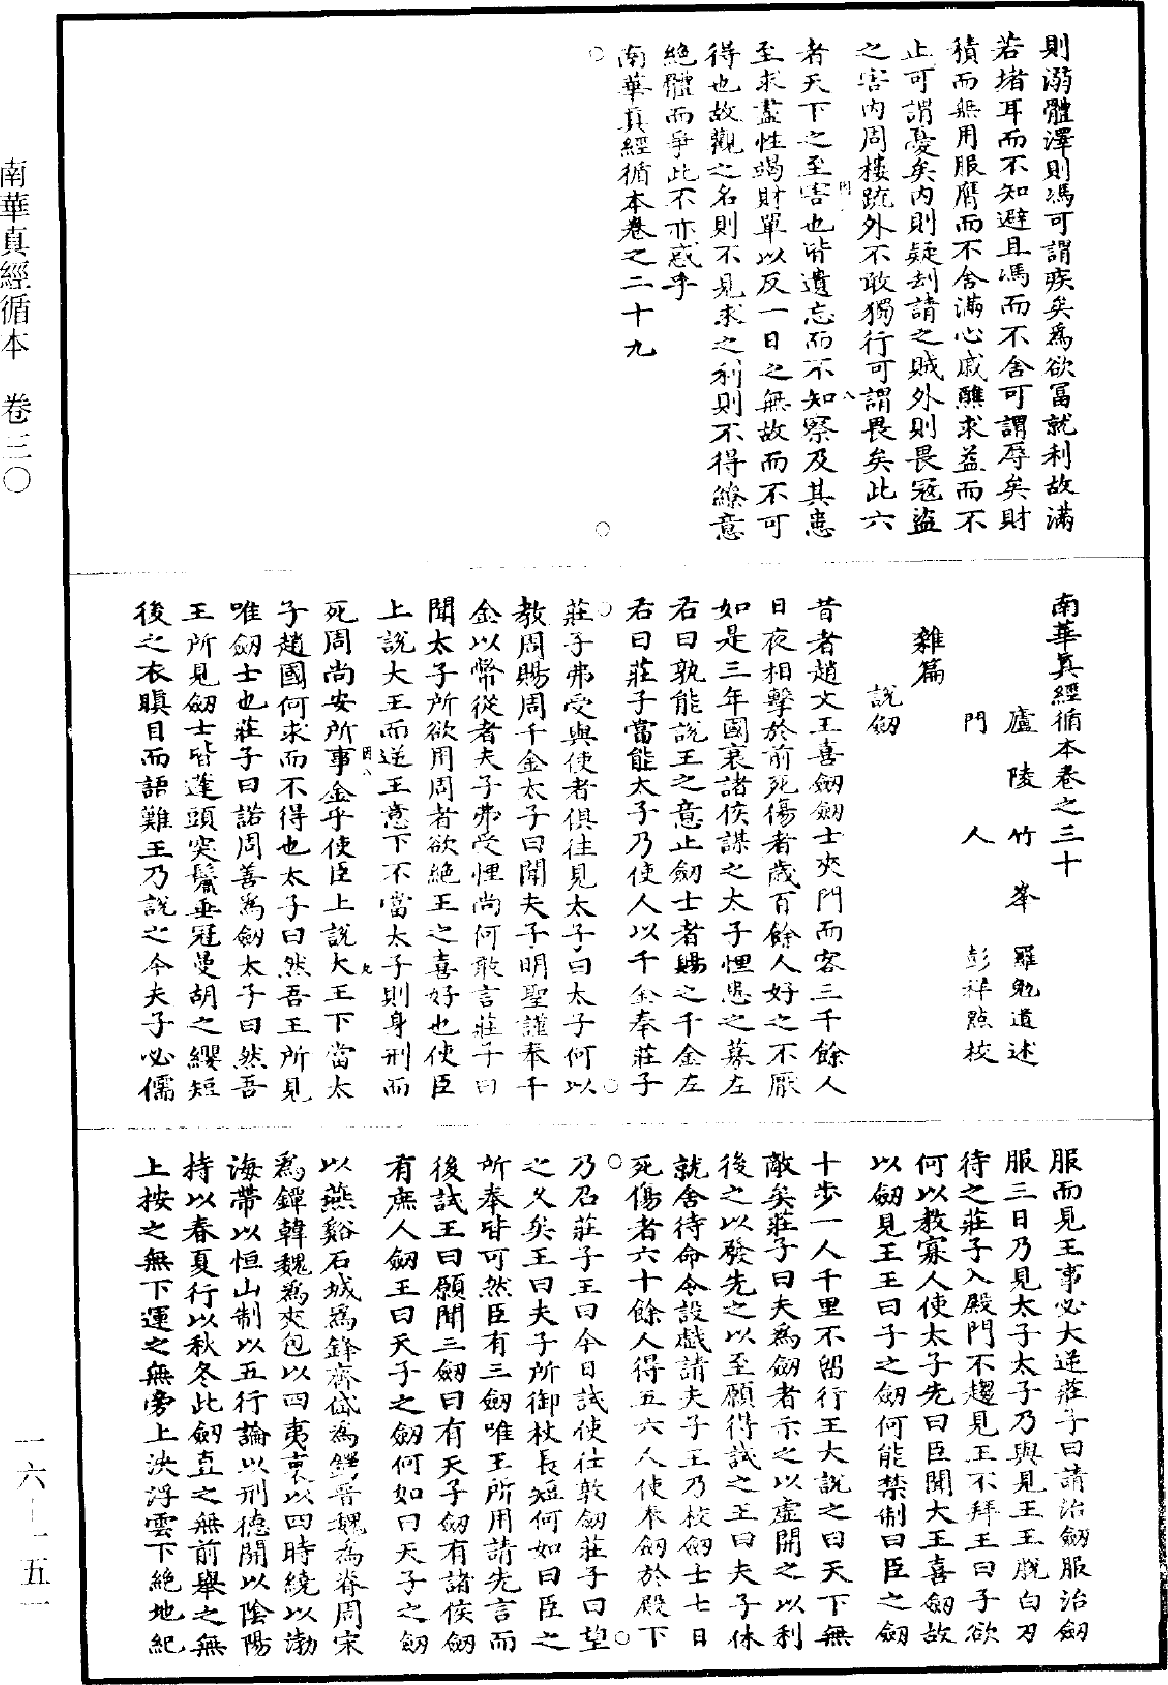 則溺體澤則馮可謂疾矣為欲冨就利故滿
若堵耳而不知避且馮而不舍可謂辱矣財
積而無用服膺而不舍滿心戚醮求益而不
止可謂憂矣内則疑刦請之賊外則畏冦盜
之害内周樓䟽外不敢獨行可謂畏矣此六
者天下之至害也皆遺忘而不知察及其患
至求盡性竭財單以反一日之無故而不可
得也故觀之名則不見求之利則不得繚意
絶體而爭此不亦惑乎
南華真經循本卷之二十九
南華真經循本卷之三十
廬陵竹峯羅勉道述
門人彭祥點校
雜篇
說劒
昔者趙文王喜劒劒士夾門而客三千餘人
日夜相擊於前死傷者歲百餘人好之不厭
如是三年國衰諸侯謀之太子悝患之募左
右曰孰能說王之意止劒士者賜之千金左
右曰莊子當能太子乃使人以千金奉莊子
莊子弗受與使者俱往見太子曰太子何以
教周賜周千金太子曰聞夫子明聖謹奉千
金以幣從者夫子弗受悝尚何敢言莊子曰
聞太子所欲用周者欲絶王之喜好也使臣
上說大王而逆王意下不當太子則身刑而
死周尚安所事金乎使臣上說大王下當太
子趙國何求而不得也太子曰然吾王所見
唯劒士也莊子曰諾周善為劒太子曰然吾
王所見劒士皆蓬頭突鬢垂冠曼胡之纓短
後之衣瞋目而語難王乃說之今夫子必儒
服而見王事必大逆莊子曰請治劒服治劒
服三日乃見太子太子乃與見王王脱白刃
待之莊子入殿門不趨見王不拜王曰子欲
何以教寡人使太子先曰臣聞大王喜劒故
以劒見王王曰子之劒何能禁制曰臣之劒
十步一人千里不留行王大說之曰天下無
敵矣莊子曰夫為劒者示之以虛開之以利
後之以發先之以至願得試之王曰夫子休
就舍待命令設戲請夫子王乃校劒士七日
死傷者六十餘人得五六人使奉劒於殿下
乃召莊子王曰今日試使士敦劒莊子曰望
之久矣王曰夫子所御杖長短何如曰臣之
所奉皆可然臣有三劒唯王所用請先言而
後試王曰願聞三劒曰有天子劒有諸侯劒
有庶人劒王曰天子之劒何如曰天子之劒
以燕谿石城為鋒齊岱為鍔晉魏為脊周宋
為鐔韓魏為夾包以四夷褁以四時繞以渤
海帶以恒山制以五行論以刑德開以陰陽
持以春夏行以秋冬此劒直之無前舉之無
上按之無下運之無旁上決浮雲下絶地紀
南華真經循本 卷三〇
一六—一五一